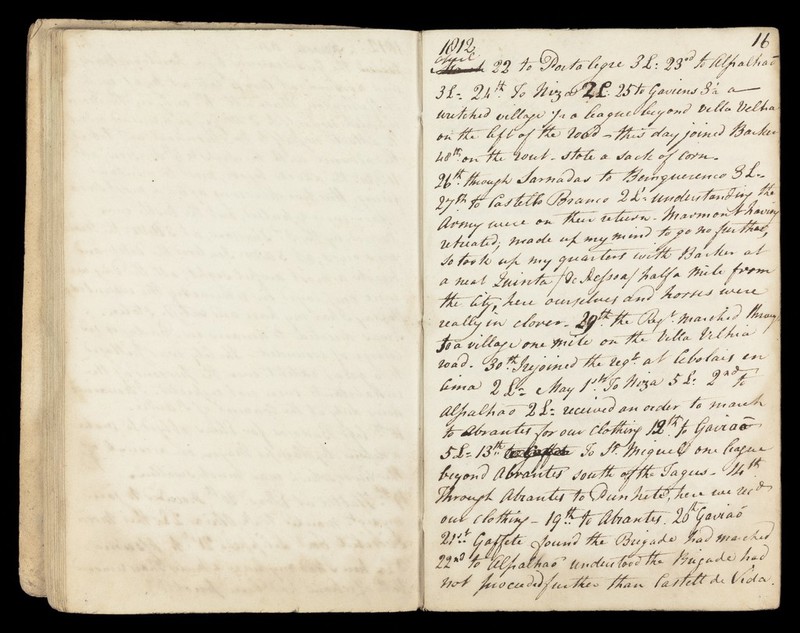 1812 16
April 22 to Portalegre 3 L: 23rd to Alpalhaõ
3 L= 24th To Niza 2 L: 25 to Gaviens 3½ a
wretched village ½ a league beyond Villa Velha
on the left of the road - this day joined Barker
48th on the rout - stole a sack of corn -
26th through Sarnadas to Bemquerenco 3 L=
27th to Castello Branco 2 L= understanding the
Army were on their return - Marmont having
retreated; made up my mind to go no further,
so took up my quarters with Barker at
a neat Quinta / half a mile from
the City, here ourselves and horses were
really in clover - 29th the Regt marched through
to a village one mile on the Villa Velhia
road - 30th I rejoined the regt at Cebolais en
Cima 2 L= May 1st To Niza 5 L: 2nd to
Alpalhao 2 L= received an order to march
to Abrantes for our Clothing 12th to Gaviaõ
5 L= 13th To St Miguel one league
beyond Abrantes south of the Tagus - 14th
Through Abrantes to Punhete, here we recd
our clothing - 19th to Abrantes. 20th Gaviaõ
21st Gaffete found the Brigade had marched
22nd to Alpalhaõ understood the Brigade had
not proceeded further than Castell de Vida.